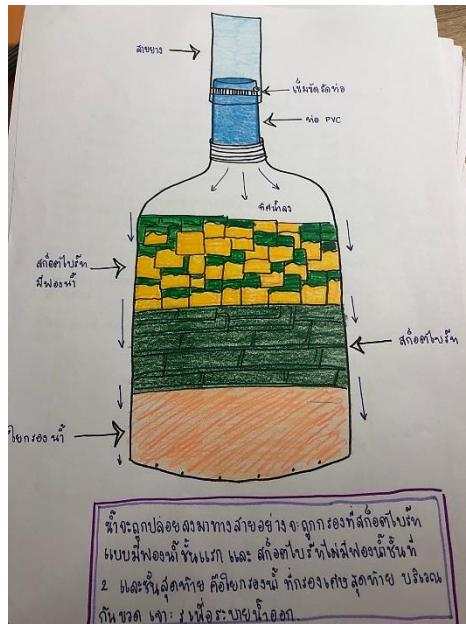 สายยาง
เข็มขัดรัดท่อ
ท่อ PVC
ทิศน้ำลง
สก็อตไบร์ท
มีฟองน้ำ
สก็อตไบร์ท
ใยกรองน้ำ
น้ำจะถูกปล่อยลงมาทางสายอย่าง จะถูกกรองที่สก็อตไบร์ท
แบบมีฟองน้ำชั้นแรก และ สก็อตไบร์ทไม่มีฟองน้ำชั้นที่
2 และชั้นสุดท้าย คือใยกรองน้ำ ที่กรองเศษสุดท้าย บริเวณ
ก้นขวด เจาะรูเพื่อระบายน้ำออก.